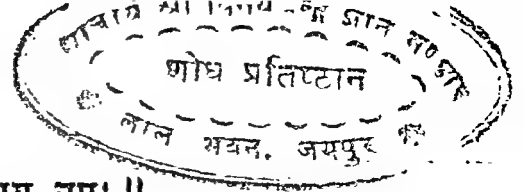 आचार्य श्री विनय ज्ञान भण्डार
शोध प्रतिष्ठान
लाल भवन, जयपुर
नमः ॥